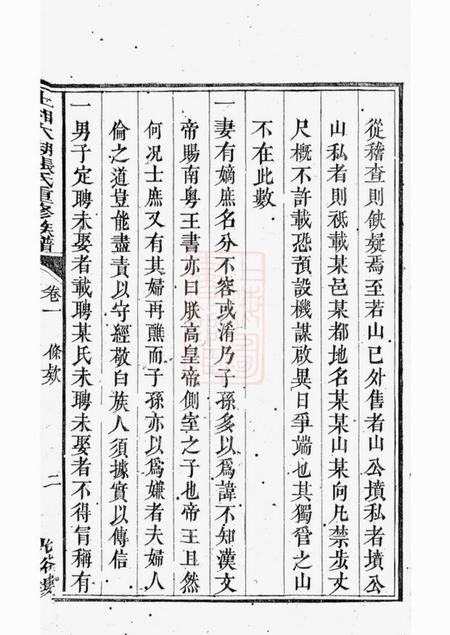 從稽查則缺疑焉至若山已外售者山公墳私者墳公
山私者則祗載某邑某都地名某某山某向凡禁步丈
尺概不許載恐預設機謀啟異日爭端也其獨管之山
不在此數
一妻有嫡庶名分不容或淆乃子孫多以爲諱不知漢文
帝賜南粤王書亦曰朕高皇帝側室之子也帝王且然
何况士庶又有其婦再醮而子孫亦以爲嫌者夫婦人
倫之道豈能盡責以守經敬白族人須據實以傳信
一男子定聘未娶者載聘某氏未聘未娶者不得冐稱有
上湘大湖張氏重修族譜 卷一 條欵 二